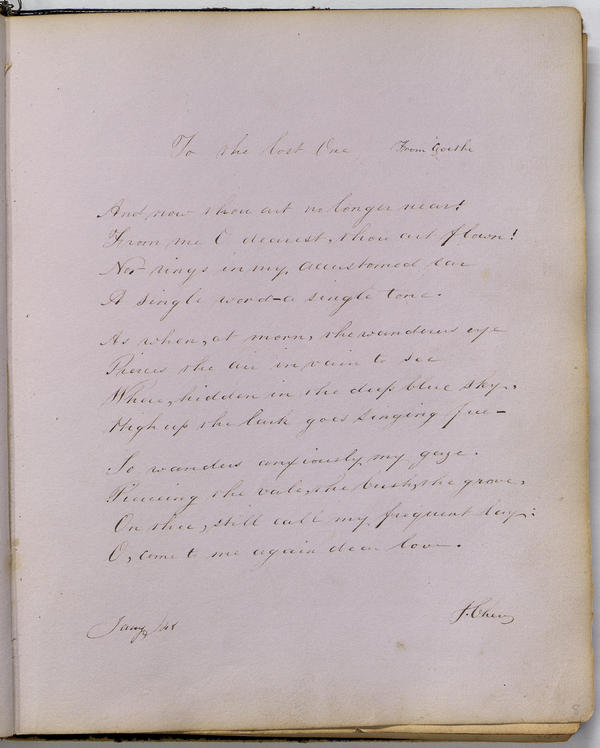 To the lost One From Goethe
And now thou art no longer near!
From me O dearest, thou art flown!
Nor rings in my, accustomed ear
A single word—a single tone.
As when, at morn, the wanderers eye
Pierces the air in vain to see
Where, hidden in the deep blue sky,
High up the lark goes singing free—
So wanders anxiously my gaze.
Piercing the vale, the bush, the grove,
On thee, still call my frequent lays:
O, come to me again dear love.
J. Chew
8